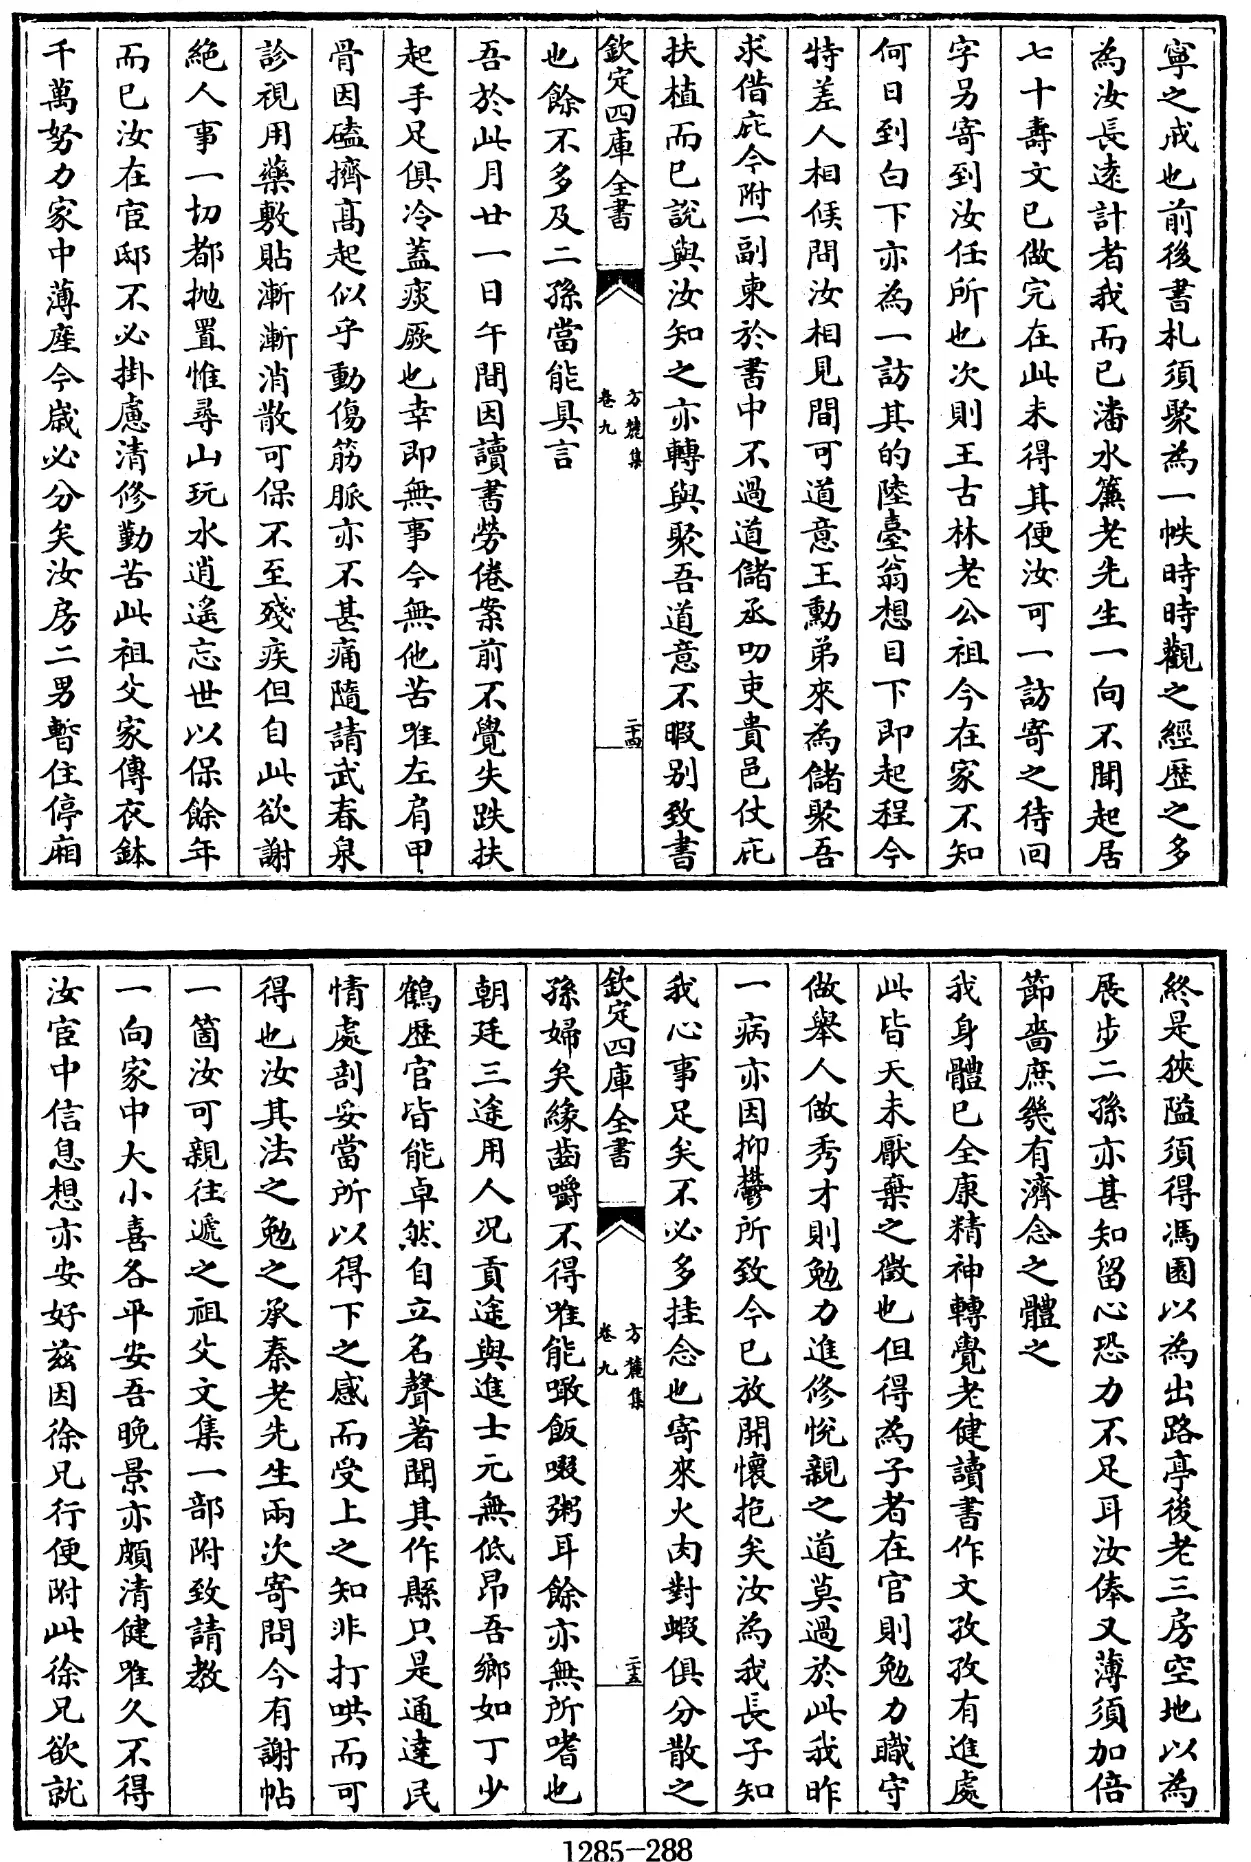 寧之戒也前後書札須聚為一帙時時觀之經歴之多
為汝長逺計者我而已潘水簾老先生一向不聞起居
七十壽文已做完在此未得其便汝可一訪寄之待回
字另寄到汝任所也次則王古林老公祖今在家不知
何日到白下亦為一訪其的陸臺翁想目下即起程今
特差人相候問汝相見間可道意王勳弟來為儲聚吾
求借庇今附一副柬於書中不過道儲丞叨吏貴邑仗庇
扶植而已說與汝知之亦轉與聚吾道意不暇别致書
欽定四庫全書
方麓集
卷九
二十四
也餘不多及二孫當能具言
吾於此月廿一日午間因讀書勞倦案前不覺失跌扶
起手足俱冷蓋痰厥也幸即無事今無他苦唯左肩甲
骨因磕擠髙起似乎動傷筋脈亦不甚痛隨請武春泉
診視用藥敷貼漸漸消散可保不至殘疾但自此欲謝
絶人事一切都抛置惟尋山玩水逍遥忘世以保餘年
而已汝在宦邸不必掛慮清修勤苦此祖父家傳衣鉢
千萬努力家中薄産今嵗必分矣汝房二男暫住停廂
終是狹隘須得馮園以為出路亭後老三房空地以為
展步二孫亦甚知留心恐力不足耳汝俸又薄須加倍
節嗇庶幾有濟念之體之
我身體已全康精神轉覺老健讀書作文孜孜有進處
此皆天未厭棄之徵也但得為子者在官則勉力職守
做舉人做秀才則勉力進修悅親之道莫過於此我昨
一病亦因抑鬱所致今已放開懷抱矣汝為我長子知
我心事足矣不必多挂念也寄來火肉對蝦俱分散之
欽定四庫全書
方麓集
卷九
二十五
孫婦矣緣齒嚼不得唯能噉飯啜粥耳餘亦無所嗜也
朝廷三途用人况貢途與進士元無低昂吾鄉如丁少
鶴歴官皆能卓然自立名聲著聞其作縣只是通達民
情處剖妥當所以得下之感而受上之知非打哄而可
得也汝其法之勉之承秦老先生兩次寄問今有謝帖
一箇汝可親往遞之祖父文集一部附致請教
一向家中大小喜各平安吾晚景亦頗清健唯久不得
汝宦中信息想亦安好兹因徐兄行便附此徐兄欲就
1285-288